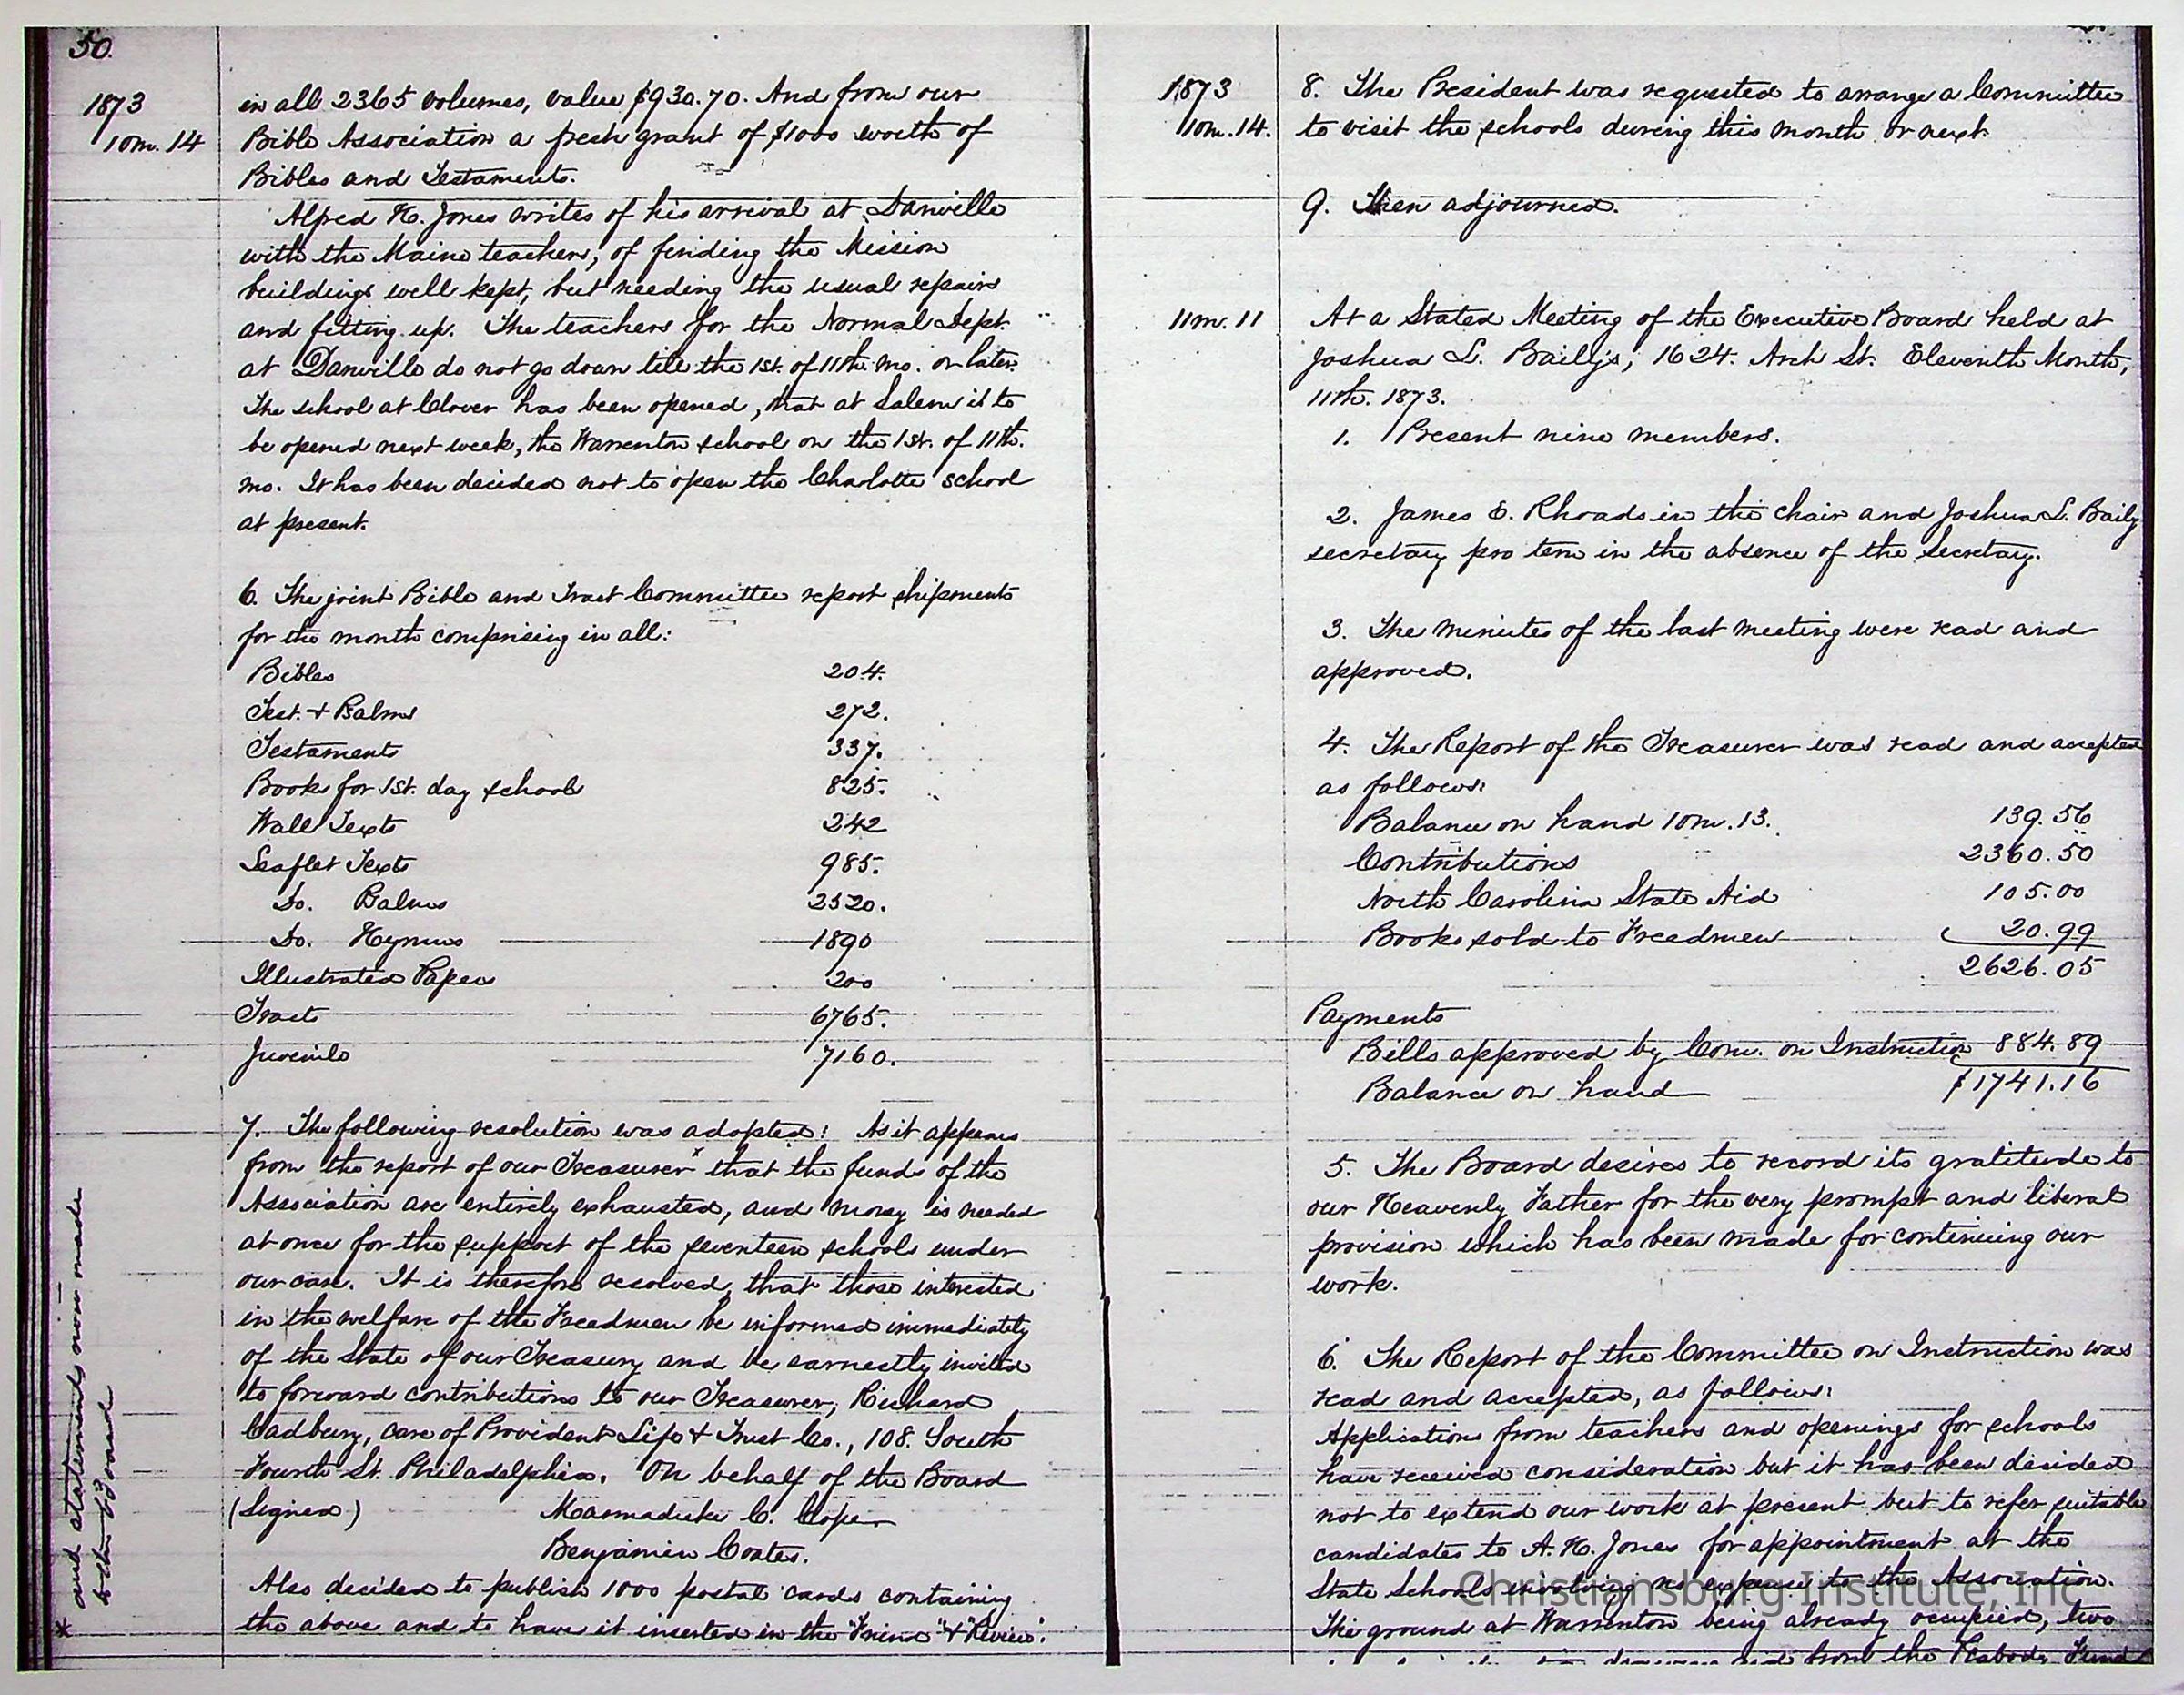 50.
1873
10m. 14
in all 2365 volumes, value $930.70. And from our
Bible Association a fresh grant of $1000 worth of
Bibles and Testaments.
Alfred H. Jones writes of his arrival at Danville
with the Maine teachers, of finding the Mission
buildings well kept, but needing the usual repairs
and fitting up. The teachers for the Normal Dept.
at Danville do not go down till the 1st. of 11th. mo. or later.
The school at Clover has been opened, that at Salem is to
be opened next week, the Warrenton school on the 1st. of 11th.
mo. It has been decided not to open the Charlotte school
at present.
6. The joint Bible and Tract Committee report shipments
for the month comprising in all:
Bibles 204.
Test. + Psalms 272.
Testaments 337.
Books for 1st. day schools 825.
Wall Texts 242
Leaflet Texts 985.
Do. Psalms 2520.
Do. Hymns 1890
Illustrated Papers 200
Tracts 6765.
Juvenile 7160.
7. The following resolution was adopted: As it appears
from the report of our Treasurer* that the funds of the
Association are entirely exhausted, and money is needed
at once for the support of the seventeen schools under
our care. It is therefore resolved, that those interested
in the welfare of the Freedmen be informed immediately
of the State of our Treasury and be earnestly invited
to forward contributions to our Treasurer, Richard
Cadbury, care of Provident Life + Trust Co., 108. South
Fourth St. Philadelphia. On behalf of the Board
(Signed) Marmaduke C. Cope
Benjamin Coates.
Also decided to publish 1000 postal cards containing
the above and to have it inserted in the "Friend" + "Review".
* and statements now made
to the Board
1873
10m. 14.
8. The President was requested to arrange a Committee
to visit the schools during this month or next.
9. Then adjourned.
11m. 11
At a Stated Meeting of the Executive Board held at
Joshua L. Baily's, 1624. Arch St. Eleventh Month,
11th. 1873.
1. Present nine members.
2. James E. Rhoads in the chair and Joshua L. Baily
secretary pro tem in the absence of the Secretary.
3. The minutes of the last meeting were read and
approved.
4. The Report of the Treasurer was read and accepted
as follows:
Balance on hand 10m. 13. 139.56
Contributions 2360.50
North Carolina State Aid 105.00
Books sold to Freedmen 20.99
2626.05
Payments
Bills approved by Com. on Instruction 884.89
Balance on hand $1741.16
5. The Board desires to record its gratitude to
our Heavenly Father for the very prompt and liberal
provision which has been made for continuing our
work.
6. The Report of the Committee on Instruction was
read and accepted, as follows:
Applications from teachers and openings for schools
have received consideration but it has been decided
not to extend our work at present but to refer suitable
candidates to A. H. Jones for appointment at the
State Schools involving no expense to the Association.
The ground at Warrenton being already occupied, two
from the Peabody Fund
Christiansburg Institute, Inc